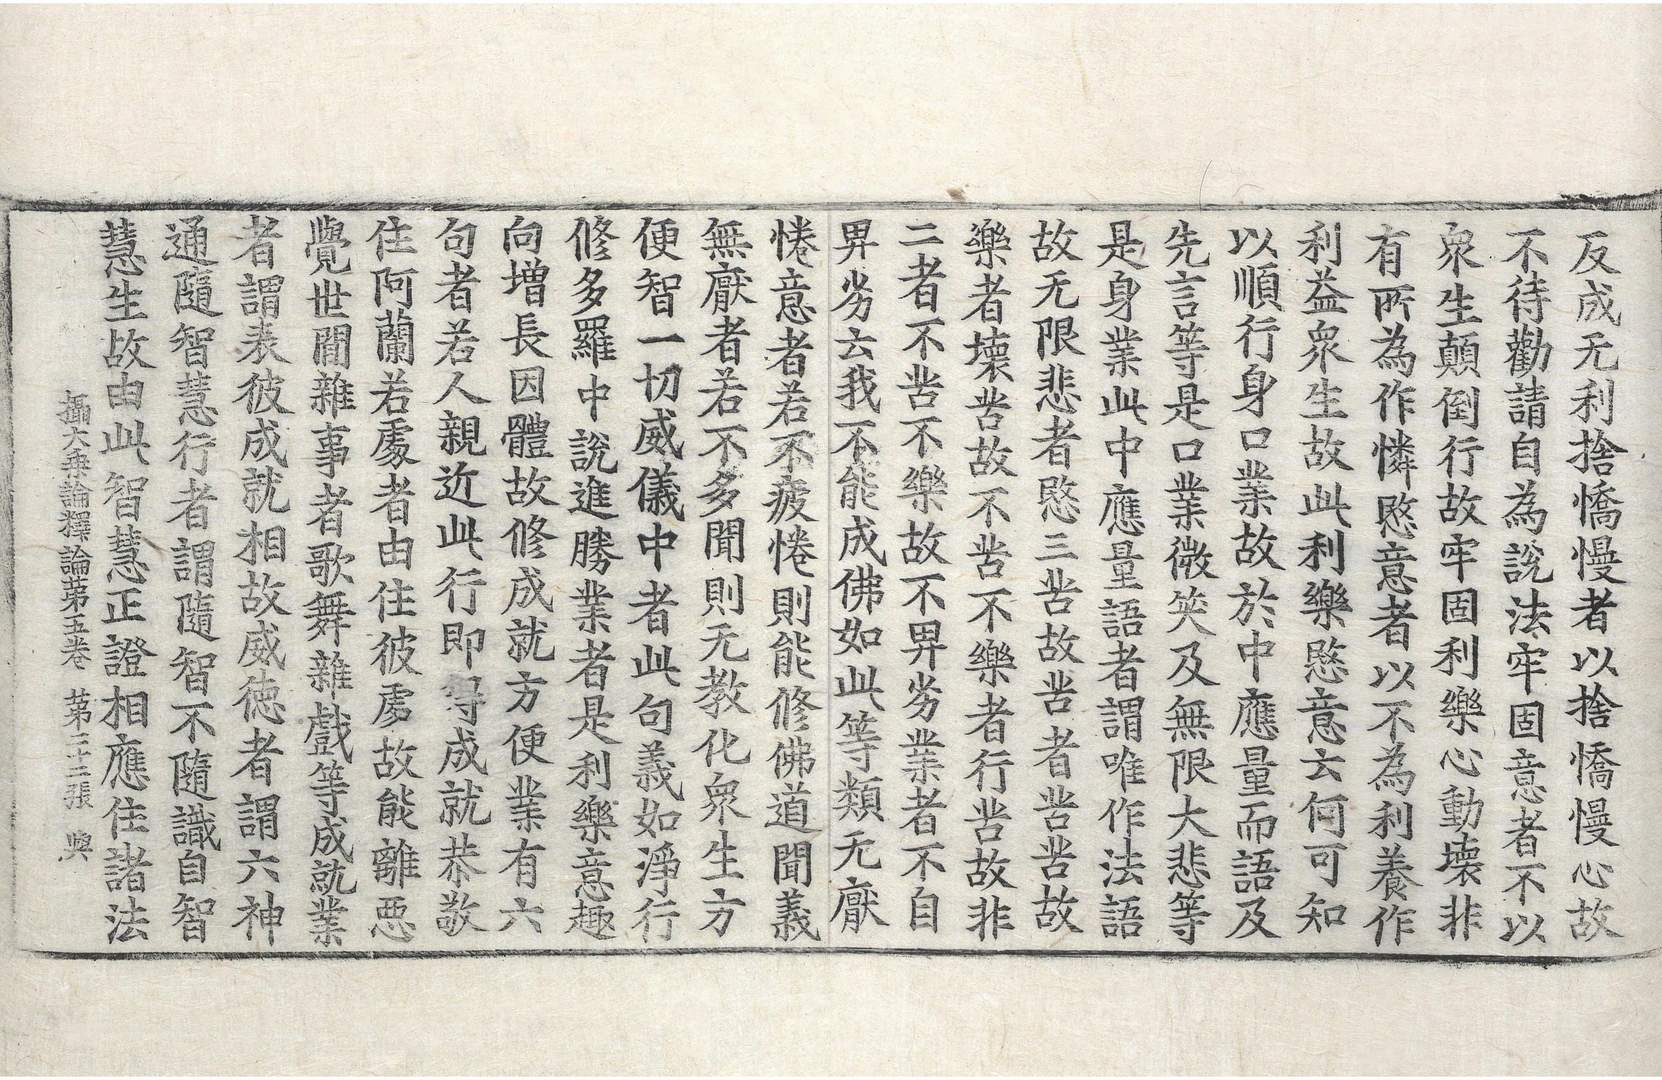 反成无利捨憍慢者以捨憍慢心故
不待勸請自為說法牢固意者不以
衆生顛倒行故牢固利樂心動壞非
有所為作憐愍意者以不為利養作
利益衆生故此利樂愍意云何可知
以順行身口業故於中應量而語及
先言等是口業微笑及無限大悲等
是身業此中應量語者謂唯作法語
故无限悲者愍三苦故苦者苦苦故
樂者壞苦故不苦不樂者行苦故非
二者不苦不樂故不畀劣業者不自
畀劣云我不能成佛如此等類无厭
惓意者若不疲惓則能修佛道聞義
無厭者若不多聞則无教化衆生方
便智一切威儀中者此句義如淨行
修多羅中說進勝業者是利樂意趣
向增長因體故修成就方便業有六
句者若人親近此行即得成就恭敬
住阿蘭若處者由住彼處故能離惡
覺世間雜事者歌舞雜戲等成就業
者謂表彼成就相故威德者謂六神
通隨智慧行者謂隨智不隨識自智
慧生故由此智慧正證相應住諸法
攝大乘論釋論第五卷 第二十二張 興